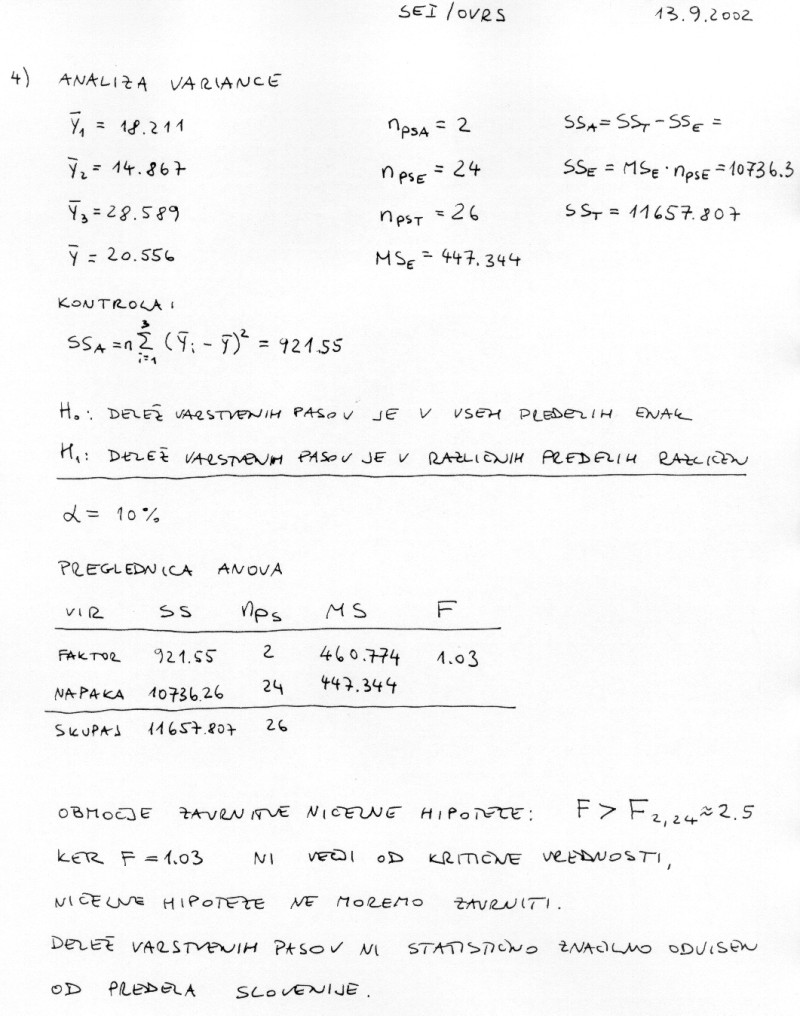 SEI/OVRS 13.9.2002
4) ANALIZA VARIANCE
ȳ₁ = 18.211 n_PSA = 2 SS_A = SS_T - SS_E =
ȳ₂ = 14.867 n_PSE = 24 SS_E = MS_E · n_PSE = 10736.3
ȳ₃ = 28.589 n_PST = 26 SS_T = 11657.807
ȳ = 20.556 MS_E = 447.344
KONTROLA:
SS_A = n Σ_{i=1}^{3} (ȳ_i - ȳ)² = 921.55
H₀: DELEŽ VARSTVENIH PASOV JE V VSEH PREDELIH ENAK
H₁: DELEŽ VARSTVENIH PASOV JE V RAZLIČNIH PREDELIH RAZLIČEN
α = 10%
PREGLEDNICA ANOVA
VIR SS nps MS F
FAKTOR 921.55 2 460.774 1.03
NAPAKA 10736.26 24 447.344
SKUPAJ 11657.807 26
OBMOČJE ZAVRNITVE NIČELNE HIPOTEZE: F > F_{2,24} ≈ 2.5
KER F = 1.03 NI VEČJI OD KRITIČNE VREDNOSTI,
NIČELNE HIPOTEZE NE MOREMO ZAVRNITI.
DELEŽ VARSTVENIH PASOV NI STATISTIČNO ZNAČILNO ODVISEN
OD PREDELA SLOVENIJE.